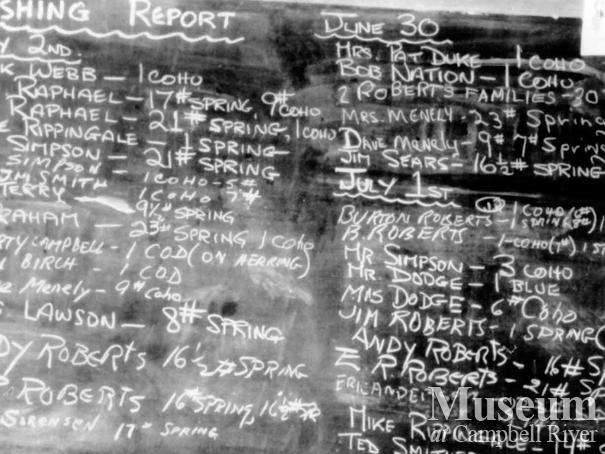 SHING REPORT
Y 2ND.
K WEBB - 1 COHO
RAPHAEL - 17# SPRING, 9# COHO
RAPHAEL - 21# SPRING, 1 COHO
E RIPPINGALE - 1 SPRING
SIMPSON - 21# SPRING
SIMPSON - 1 COHO - 5#
JM SMITH 1 COHO 7#
TERRY 9½# SPRING
RAHAM - 23# SPRING 1 COHO
RTY CAMPBELL - 1 COD (ON HERRING)
BIRCH - 1 COD
e Menely - 9# Coho
S LAWSON - 8# SPRING
DY ROBERTS 16½# SPRING
ROBERTS 16# SPRING, 16½#
SORENSEN 17# SPRING
JUNE 30
MRS. PAT DUKE - 1 COHO
BOB NATION - 1 COHO
2 ROBERTS FAMILIES - 30
MRS. MENELY - 23# Spring
DAVE Menely - 9# 7# Spring
JIM SEARS - 16½# SPRING
JULY 1ST
BURTON ROBERTS - 1 COHO
B. ROBERTS - 1 COHO (7#) 1 ST
MR SIMPSON - 3 COHO
MR. DODGE - 1 BLUE
MIS DODGE - 6# COHO
JIM ROBERTS - 1 SPRING
ANDY ROBERTS - 16# S
E R ROBERTS - 21# S
MIKE
TED
Museum
at Campbell River